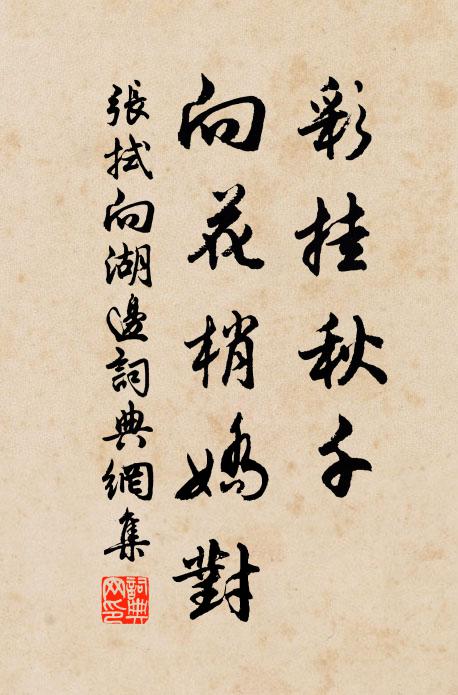 彩挂秋千
向花梢嬌對
張拭向湖邊詞典網集
詞典网印